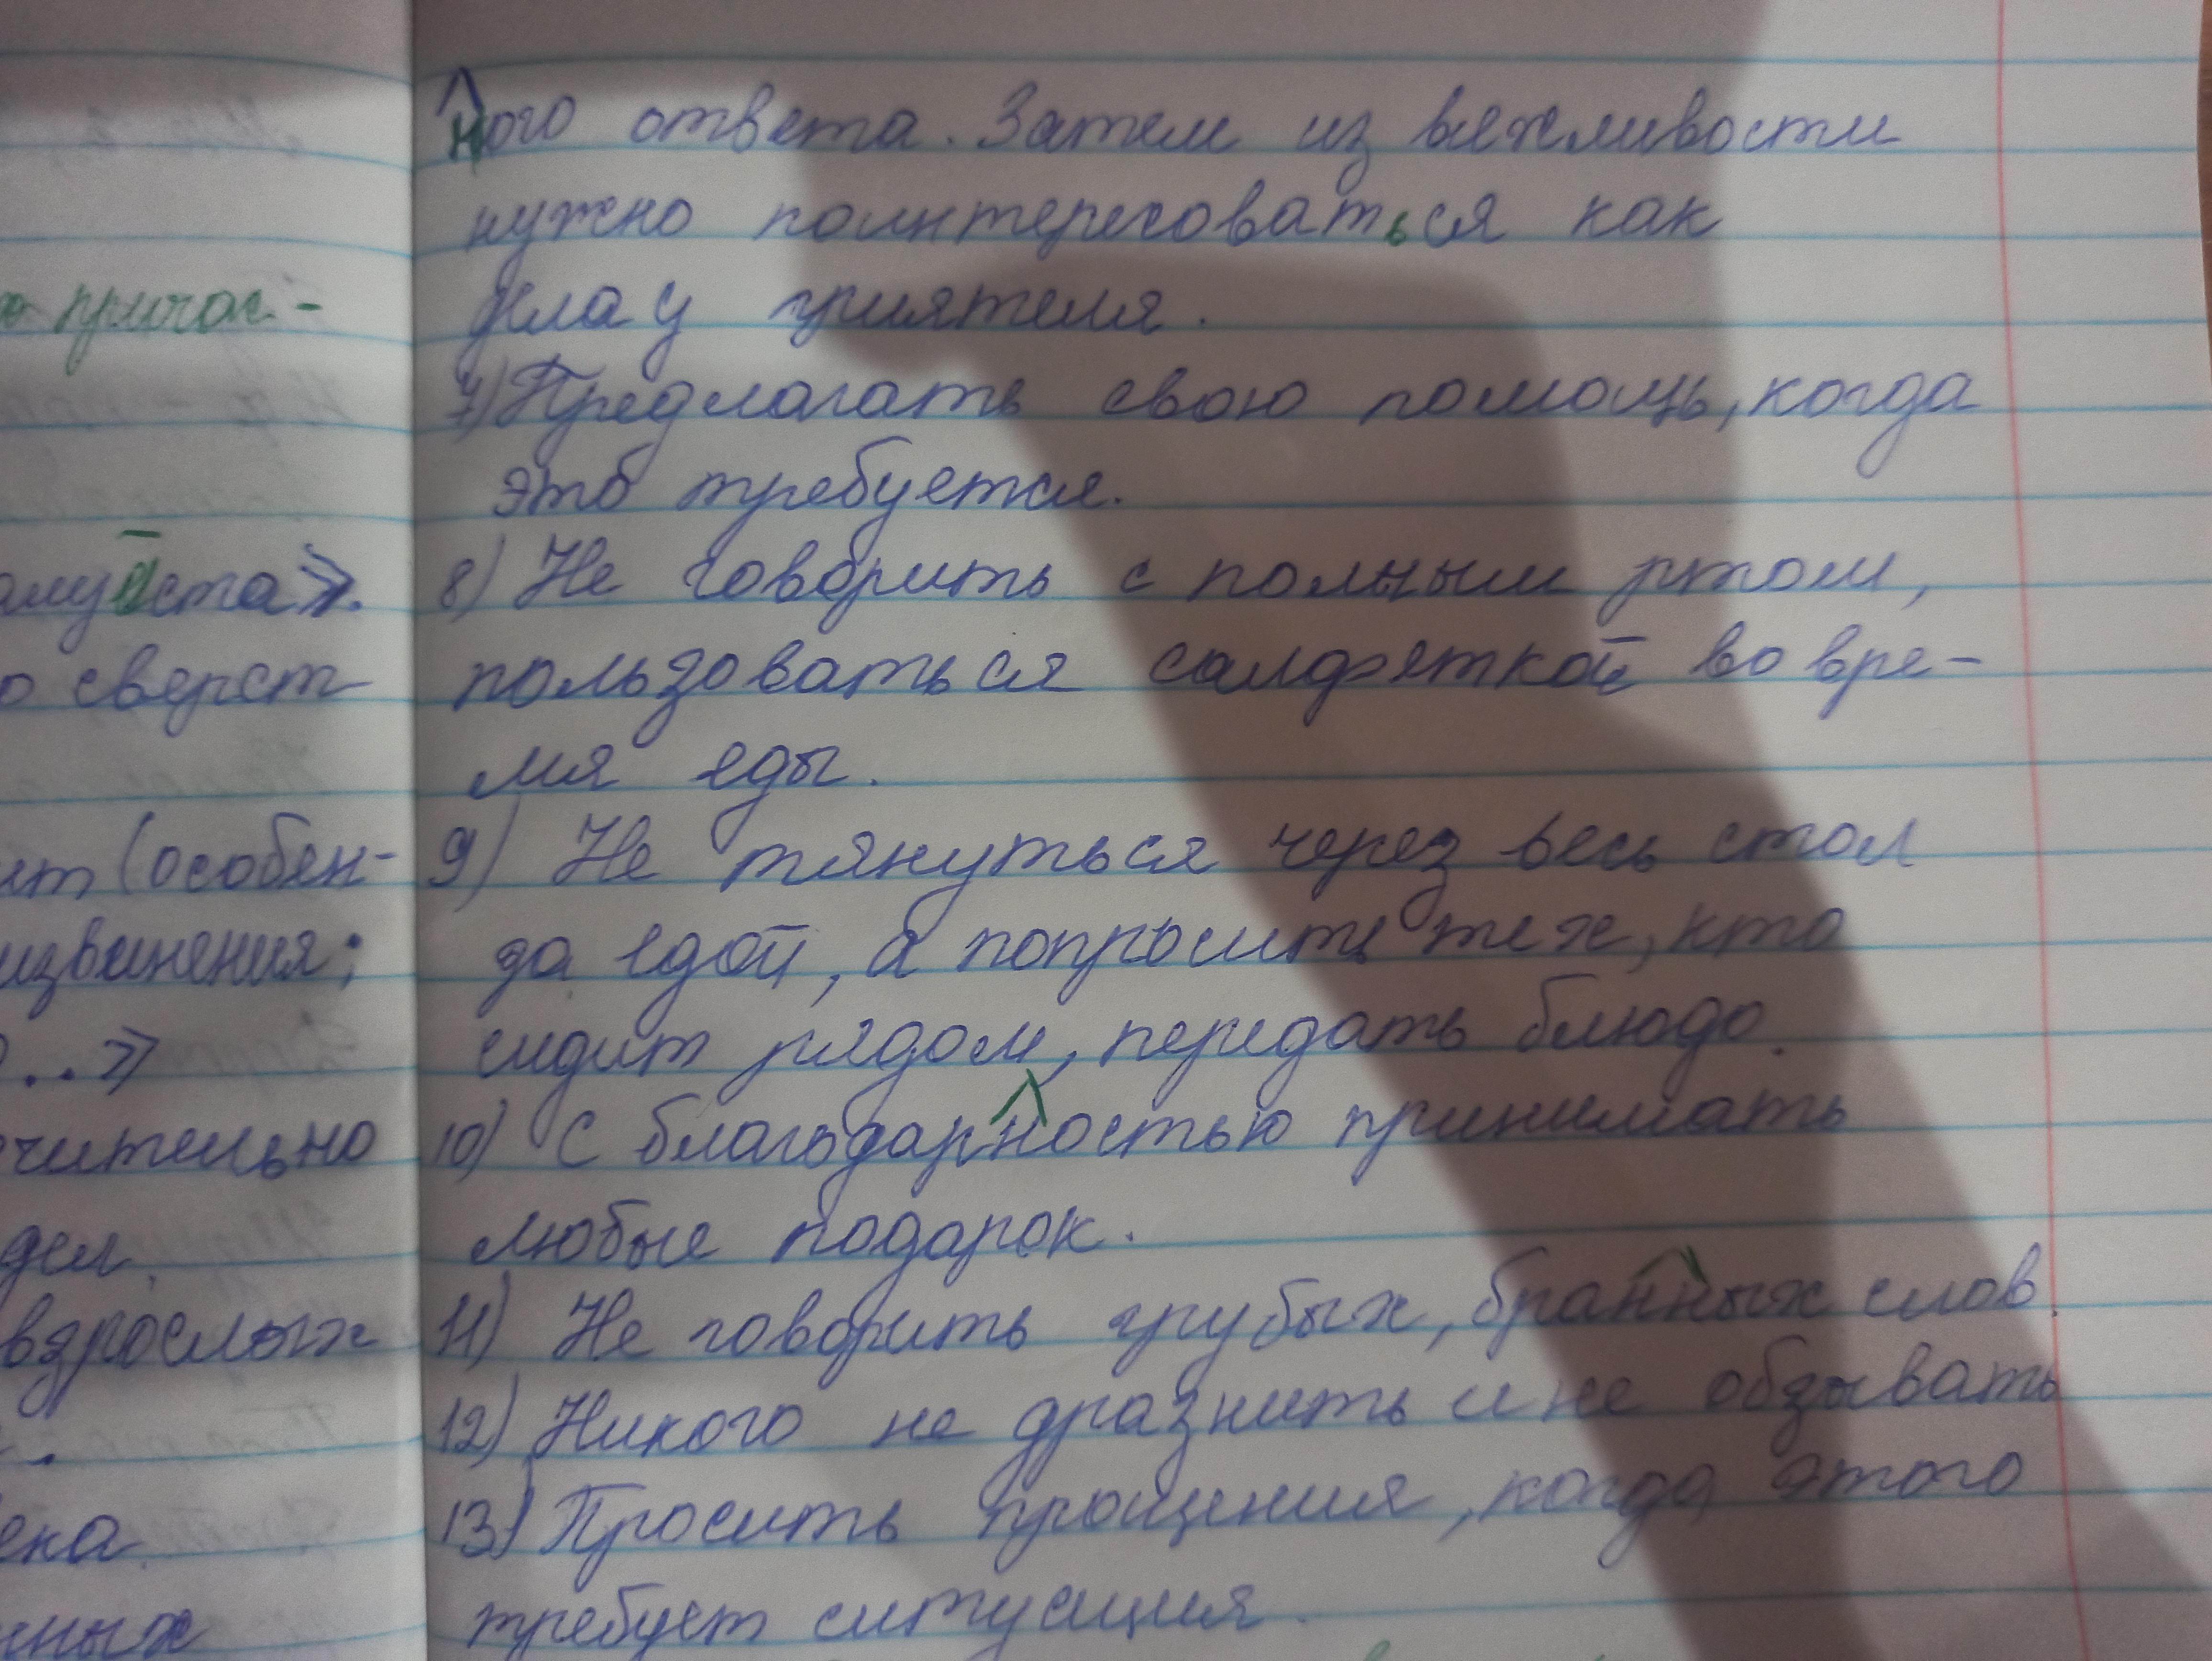 ю причас-
амуйста».
о сверст
ит (особен-
извинения;
...»
чительно
дел.
взрослых
ека.
нных
ного ответа. Затем из вежливости
нужно поинтересоваться как
дела у приятеля.
7) Предлагать свою помощь, когда
это требуется.
8) Не говорить с полным ртом,
пользоваться салфеткой во вре-
мя еды.
9) Не тянуться через весь стол
за едой, а попросить тех, кто
сидит рядом, передать блюдо.
10) С благодарностью принимать
любые подарок.
11) Не говорить грубых, бранных слов.
12) Никого не дразнить и не обзывать
13) Просить прощения, когда этого
требует ситуация.